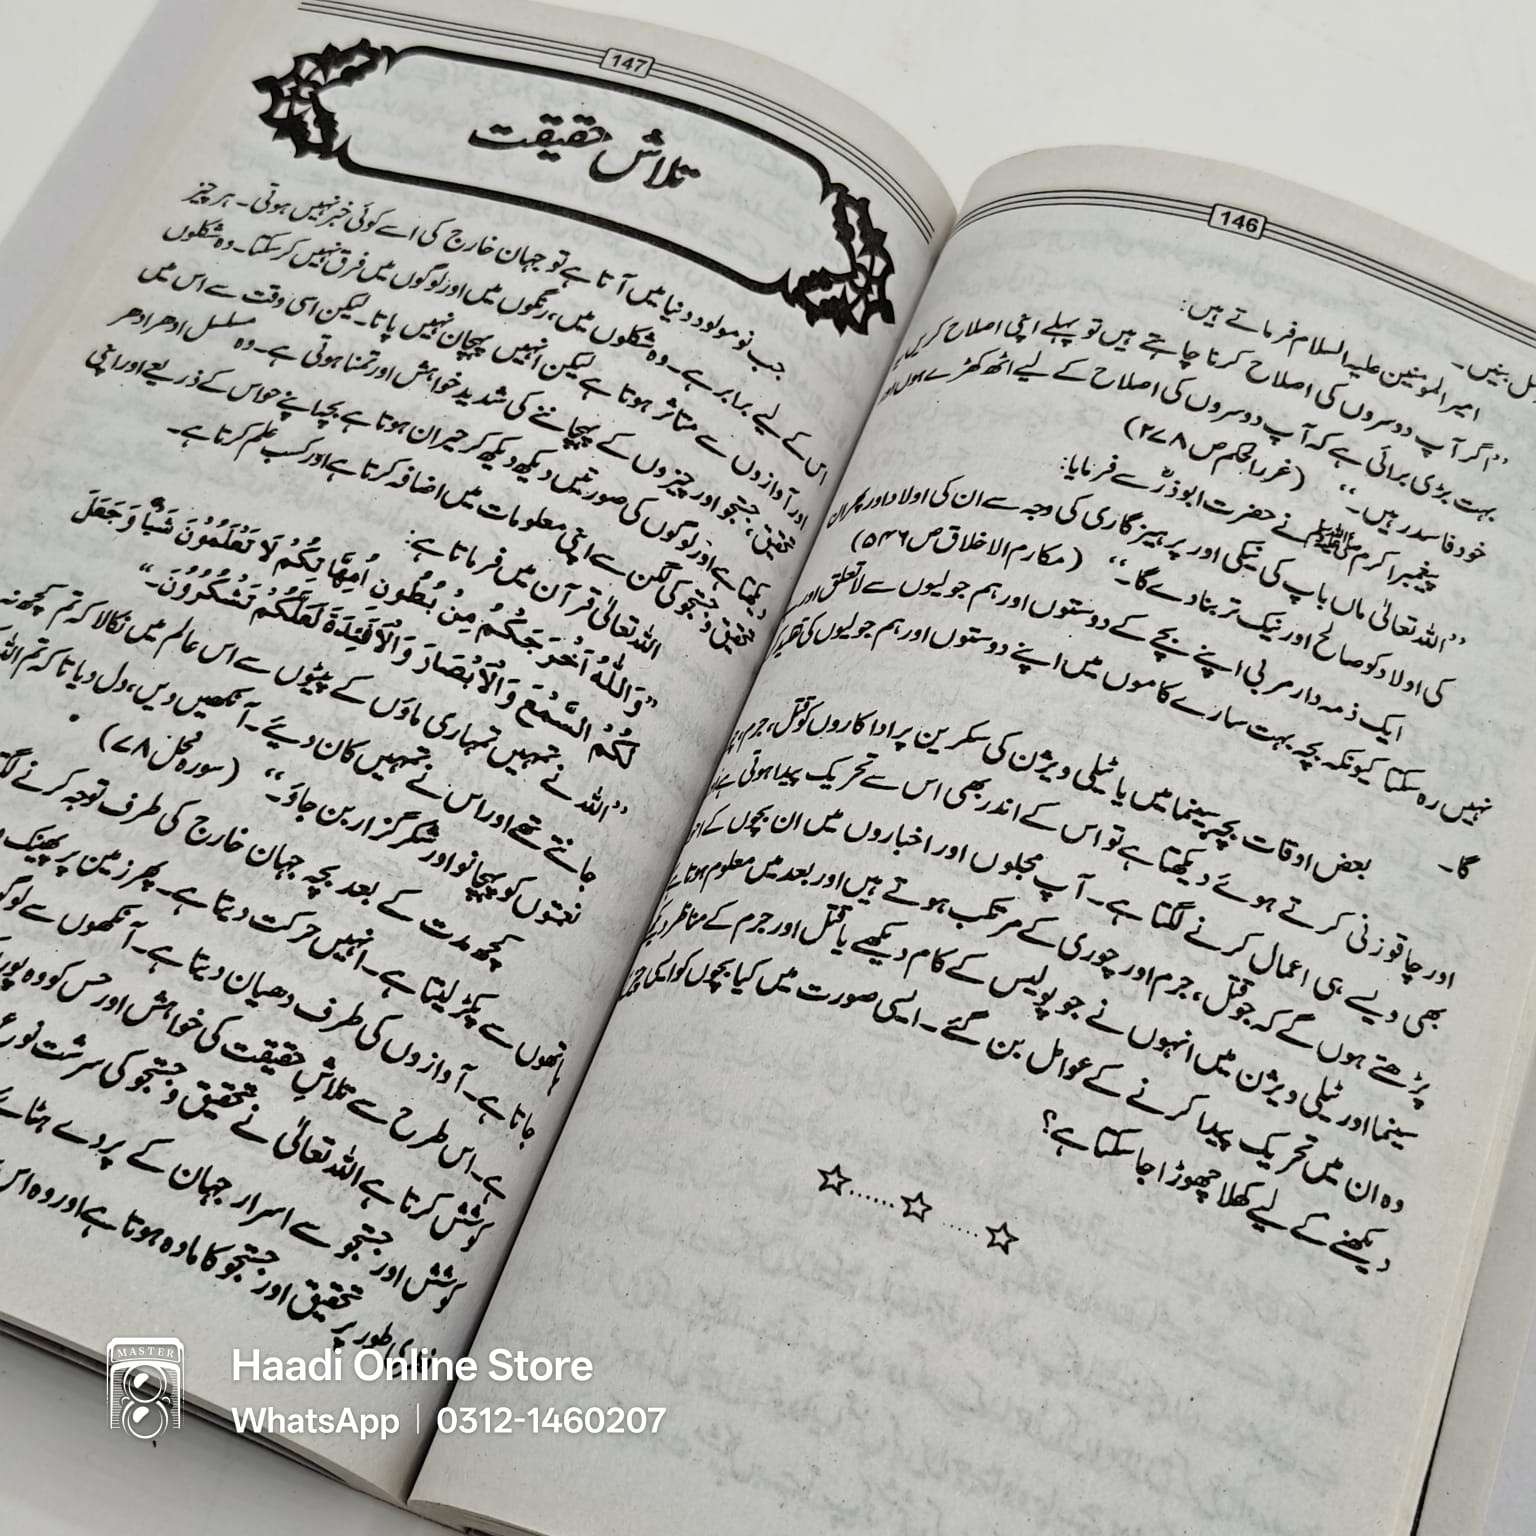 146
عمل بنیں۔
امیر المومنین علیہ السلام فرماتے ہیں:
”اگر آپ دوسروں کی اصلاح کرنا چاہتے ہیں تو پہلے اپنی اصلاح کریں
بہت بڑی برائی ہے کہ آپ دوسروں کی اصلاح کے لیے اٹھ کھڑے ہوں اور
خود فاسد رہیں۔“ (غرر الحکم ص ۲۷۸)
پیغمبر اکرم ﷺ نے حضرت ابوذرؓ سے فرمایا:
”اللہ تعالیٰ ماں باپ کی نیکی اور پرہیزگاری کی وجہ سے ان کی اولاد اور پھر ان
کی اولاد کو صالح اور نیک تر بنا دے گا۔“ (مکارم الاخلاق ص ۵۴۶)
ایک ذمہ دار مربی اپنے بچے کے دوستوں اور ہم جولیوں سے لاتعلق اور
نہیں رہ سکتا کیونکہ بچہ بہت سارے کاموں میں اپنے دوستوں اور ہم جولیوں کی
گا۔
بعض اوقات بچہ سینما میں یا ٹیلی ویژن کی سکرین پر اداکاروں کو قتل، جرم،
اور چاقو زنی کرتے ہوئے دیکھتا ہے تو اس کے اندر بھی اس سے تحریک پیدا ہوتی ہے
بھی ویسے ہی اعمال کرنے لگتا ہے۔ آپ مجلوں اور اخباروں میں ان بچوں کے
پڑھتے ہوں گے کہ جو قتل، جرم اور چوری کے مرتکب ہوتے ہیں اور بعد میں معلوم ہوتا ہے
سینما اور ٹیلی ویژن میں انہوں نے جو پولیس کے کام دیکھے یا قتل اور جرم کے مناظر
وہ ان میں تحریک پیدا کرنے کے عوامل بن گئے۔ ایسی صورت میں کیا بچوں کو ایسی
دیکھنے کے لیے کھلا چھوڑا جا سکتا ہے؟
☆......☆......☆
147
تلاش حقیقت
جب نومولود دنیا میں آتا ہے تو جہان خارج کی اسے کوئی خبر نہیں ہوتی۔ ہر چیز
اس کے لیے برابر ہے۔ وہ شکلوں میں، رنگوں میں اور لوگوں میں فرق نہیں کر سکتا۔ وہ شکلوں
اور آوازوں سے متاثر ہوتا ہے لیکن انہیں پہچان نہیں پاتا۔ لیکن اسی وقت سے اس میں
تحقیق، جستجو اور چیزوں کے پہچاننے کی شدید خواہش اور تمنا ہوتی ہے۔ وہ مسلسل ادھر ادھر
دیکھتا ہے اور لوگوں کی صورتیں دیکھ دیکھ کر حیران ہوتا ہے بچہ اپنے حواس کے ذریعے اور اپنی
تحقیق و جستجو کی لگن سے اپنی معلومات میں اضافہ کرتا ہے اور کسب علم کرتا ہے۔
اللہ تعالیٰ قرآن میں فرماتا ہے:
”وَاللّٰهُ اَخْرَجَكُمْ مِنْ بُطُوْنِ اُمَّهَاتِكُمْ لَا تَعْلَمُوْنَ شَيْأً وَ جَعَلَ
لَكُمُ السَّمْعَ وَ الْاَبْصَارَ وَ الْاَفْئِدَةَ لَعَلَّكُمْ تَشْكُرُوْنَ۔“
”اللہ نے تمہیں تمہاری ماؤں کے پیٹوں سے اس عالم میں نکالا کہ تم کچھ نہ
جانتے تھے اور اس نے تمہیں کان دیے۔ آنکھیں دیں، دل دیا تا کہ تم اللہ
نعمتوں کو پہچانو اور شکر گزار بن جاؤ۔“ (سورہ نحل ۷۸)
کچھ مدت کے بعد بچہ جہان خارج کی طرف توجہ کرنے لگتا
ہاتھوں سے پکڑ لیتا ہے۔ انہیں حرکت دیتا ہے۔ پھر زمین پر پھینک
جاتا ہے۔ آوازوں کی طرف دھیان دیتا ہے۔ آنکھوں سے
ہے۔ اس طرح سے تلاش حقیقت کی خواہش اور حس کو وہ
کوشش کرتا ہے اللہ تعالیٰ نے تحقیق و جستجو کی سرشت
کوشش اور جستجو سے اسرار جہان کے پردے ہٹائے
طور پر تحقیق اور جستجو کا مادہ ہوتا ہے اور وہ اس
MASTER
Haadi Online Store
WhatsApp | 0312-1460207